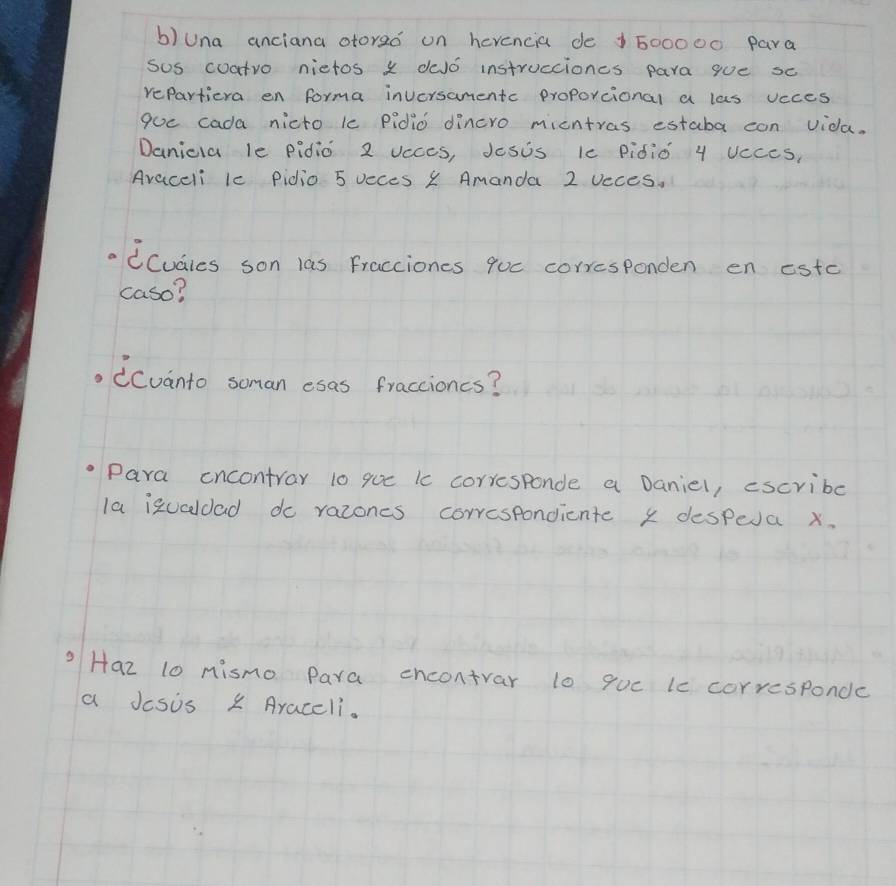 b) Una anciana otorgó un herencia de $500000 para
sus cuatro nietos y dejó instrucciones para que se
repartiera en forma inversamente proporcional a las veces
que cada nieto le pidió dinero mientras estaba con vida.
Daniela le pidió 2 veces, Jesús le pidió 4 veces,
Araceli le pidio 5 veces y Amanda 2 veces.
• ¿Cuáles son las fracciones que corresponden en este
caso?
• ¿Cuánto suman esas fracciones?
• Para encontrar lo que le corresponde a Daniel, escribe
la igualdad de razones correspondiente y despeja x.
• Haz lo mismo para encontrar lo que le corresponde
a Jesús y Araceli.